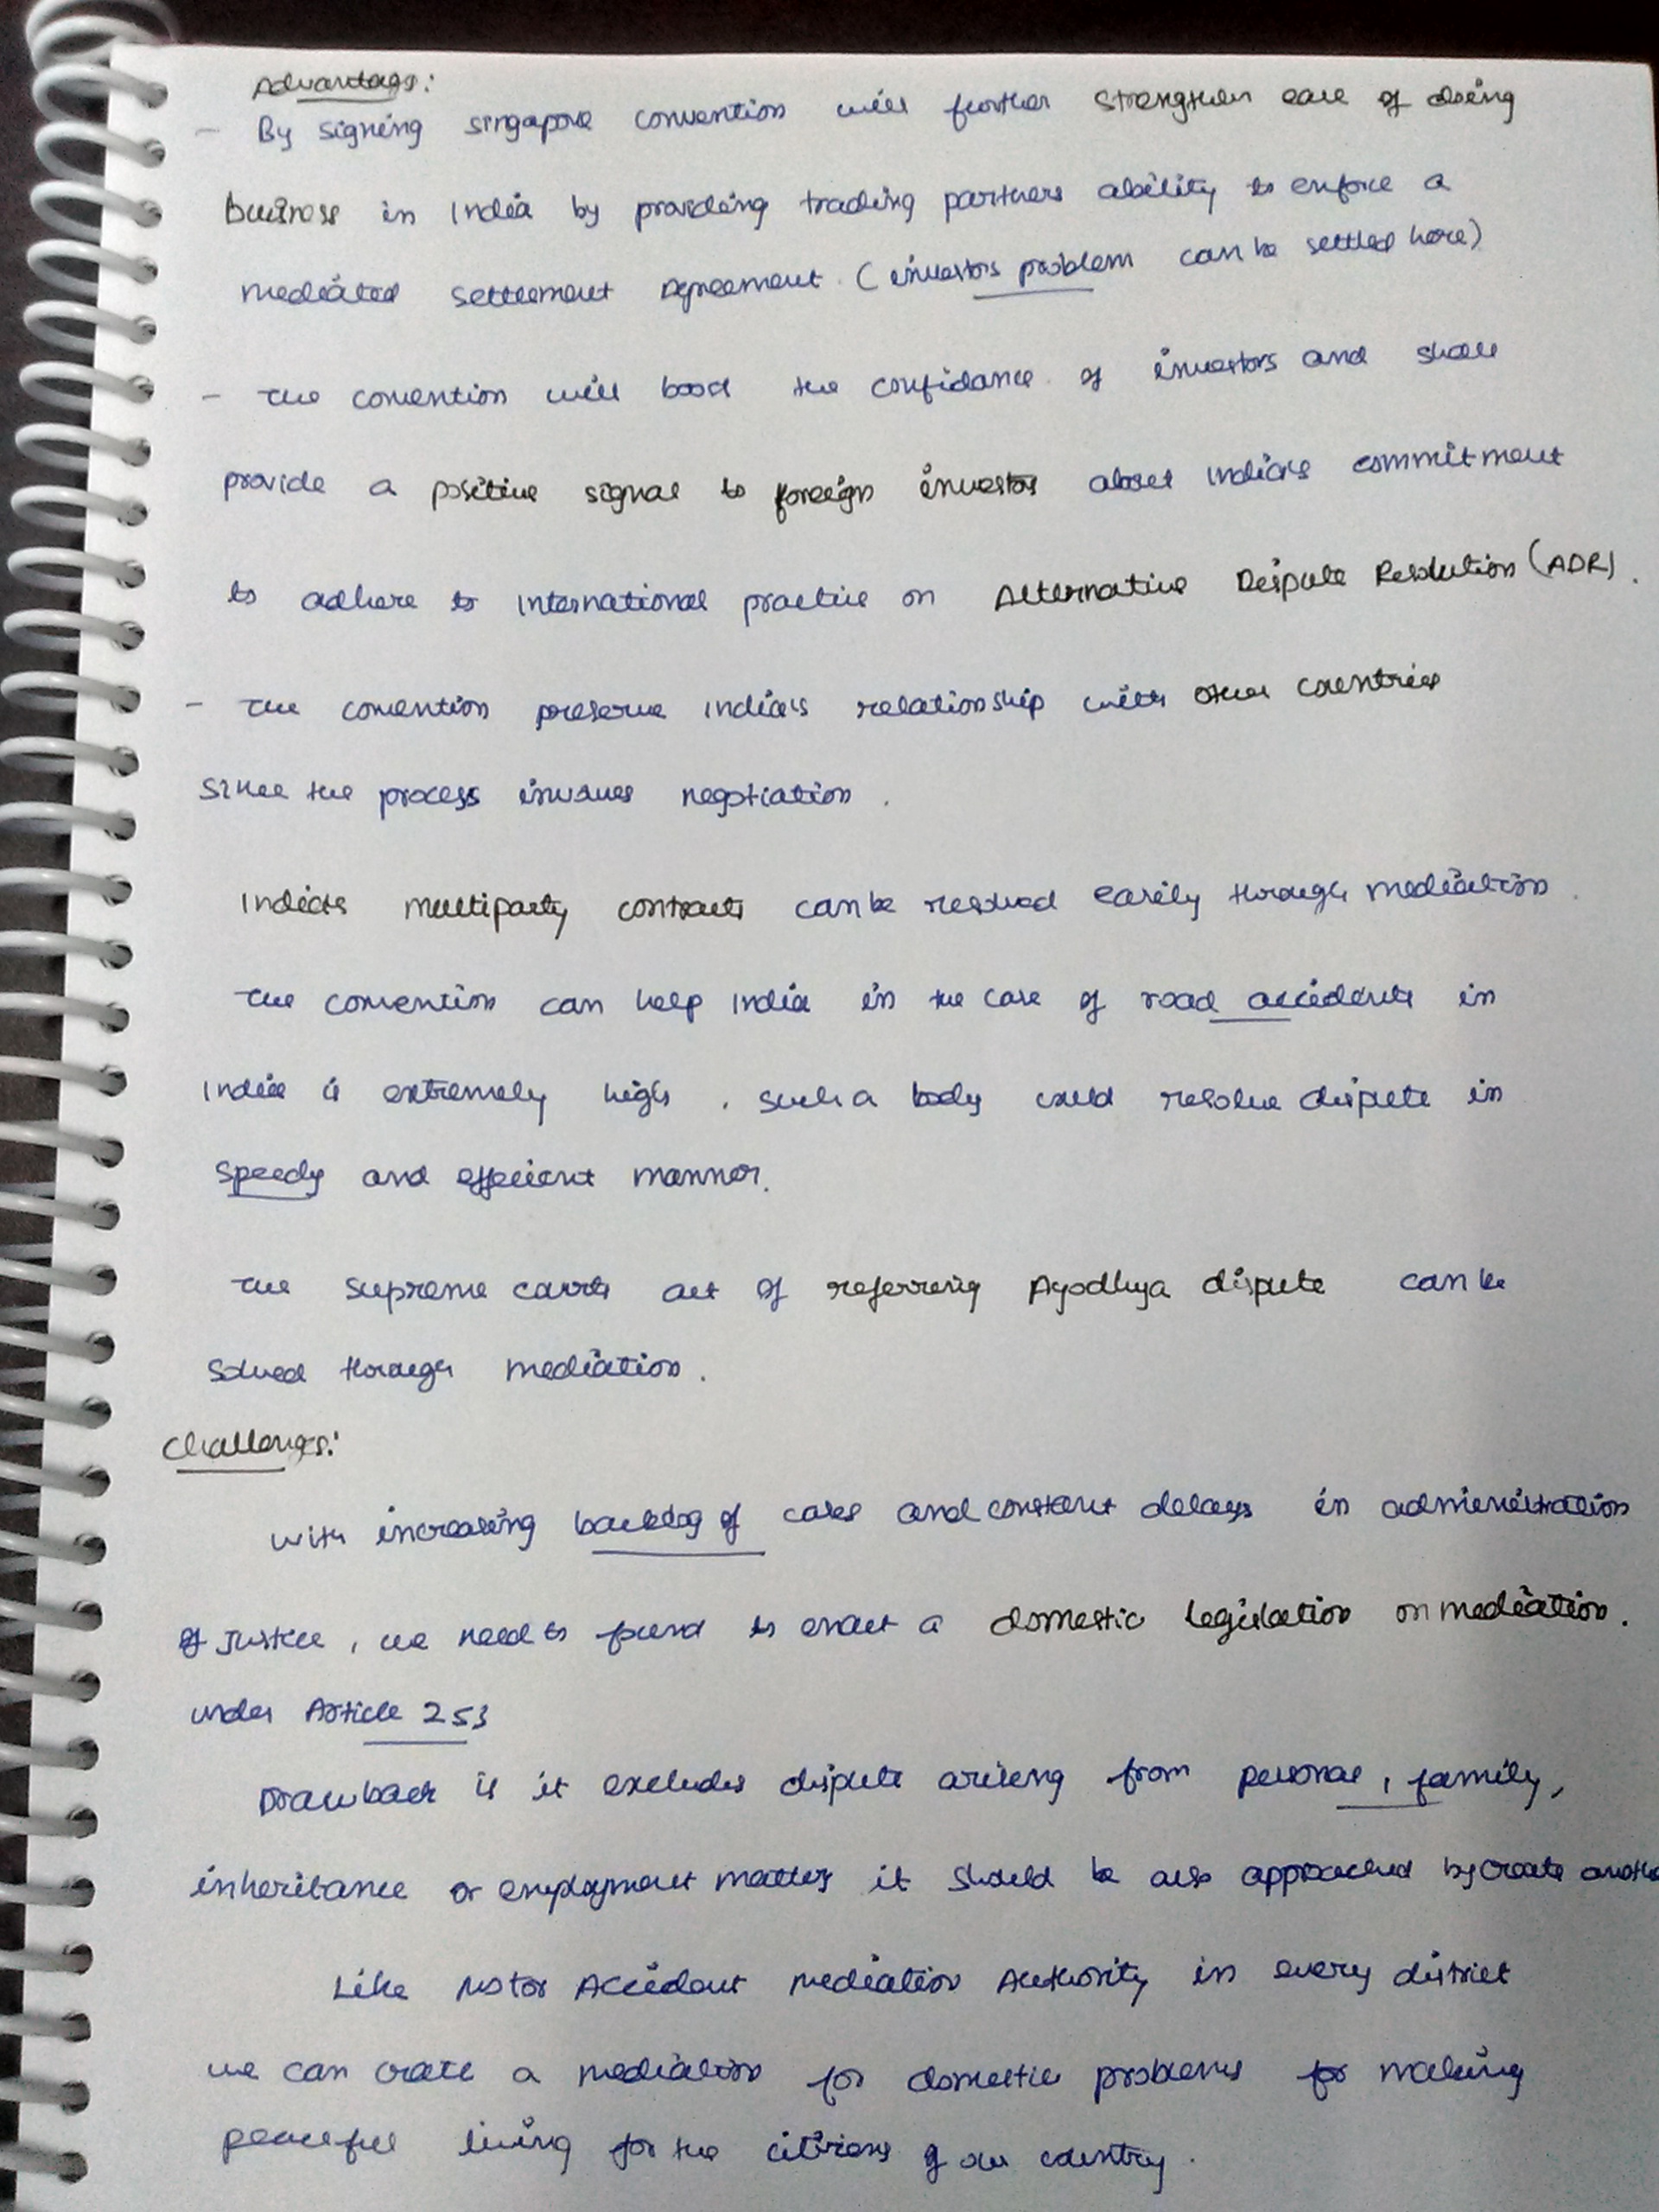 Advantags:
- By signing singapore convention will further strengthen ease of doing
business in India by providing trading partners ability to enforce a
mediated settlement agreement. (investors problem can be settled here)
- The convention will boost the confidance of investors and shall
provide a positive signal to foreign investors about India's commitment
to adhere to international practice on Alternative Dispute Resolution (ADR).
- The convention preserve India's relationship with other countries
since the process involves negotiation.
India's multiparty contracts can be resolved easily through mediation.
The convention can help India in the case of road accidents in
India is extremely high. such a body could resolve dispute in
speedy and efficient manner.
The supreme courts act of referring Ayodhya dispute can be
solved through mediation.
Challenges:
With increasing backlog of cases and constant delays in administration
of justice, we need to to enact a domestic legislation on mediation.
under Article 253
Drawback is it excludes dispute arising from personal, family,
inheritance or employment matters it should be also approached by create
Like Motor Accident mediation Authority in every district
we can crate a mediation for domestic problems for making
peaceful living for the citizens of our country.